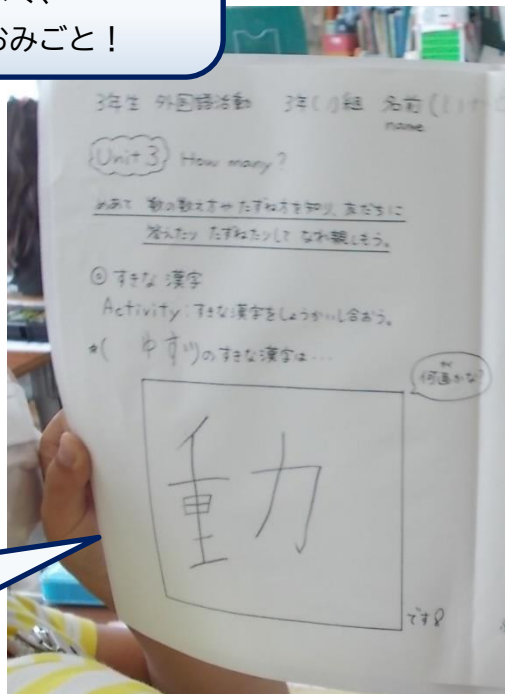 おみごと！
3年生 外国語活動 3年( )組 名前(
name
Unit 3 How many?
めあて 数の数え方やたずね方を知り、友だちに
答えたり たずねたりして なれ親しもう。
◎ すきな 漢字
Activity：すきな漢字をしょうかいし合おう。
*( ゆずり)のすきな漢字は…
が
何画かな?
動
です